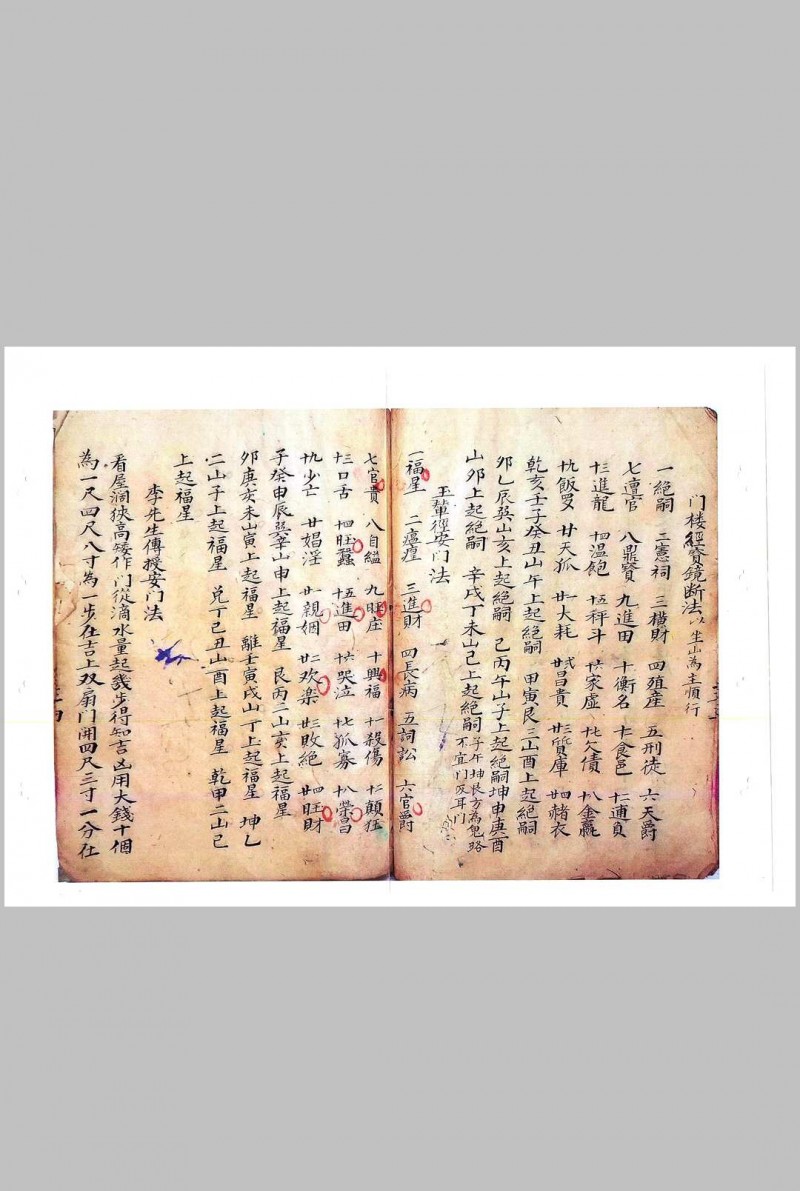 门楼經寶鏡断法以坐山為主順行
一絕嗣 二憲祠 三橫財 四殖産 五刑徒 六天爵
七遭官 八鼎寳 九進田 十衡名 十一食邑 十二逋負
十三進龍 十四温飽 十五秤斗 十六家虛 十七欠債 十八金贏
十九飯罗 廿天狐 廿一大耗 廿弍昌貴 廿三質庫 廿四赭衣
乾亥壬子癸丑山午上起絕嗣 甲寅艮三山酉上起絕嗣
卯乙辰巽山亥上起絕嗣 己丙午山子上起絕嗣坤申庚酉
山卯上起絕嗣 辛戌丁未山己上起絕嗣子午坤艮方為鬼路不宜門及耳门
玉輦徑安门法
一福星 二瘟瘟 三進財 四長病 五詞訟 六官爵
七官貴 八自縊 九旺庄 十興福 十一殺傷 十二顛狂
十三口舌 十四旺蠶 十五進田 十六哭泣 十七孤寡 十八榮昌
十九少亡 廿娼淫 廿一親姻 廿二欢楽 廿三敗絕 廿四旺財
子癸申辰巽辛山申上起福星 艮丙二山亥上起福星
卯庚亥未山寅上起福星 離壬寅戌山丁上起福星 坤乙
二山子上起福星 兑丁己丑山酉上起福星 乾甲二山己
上起福星
李先生傳授安门法
看屋濶狹高矮作门從滴水量起幾步得知吉凶用大錢十個
為一尺四尺八寸為一步在吉上双扇门開四尺三寸一分在